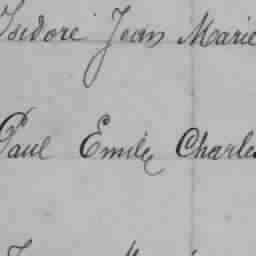 Isidore Jean Marie
Paul Emile Charles